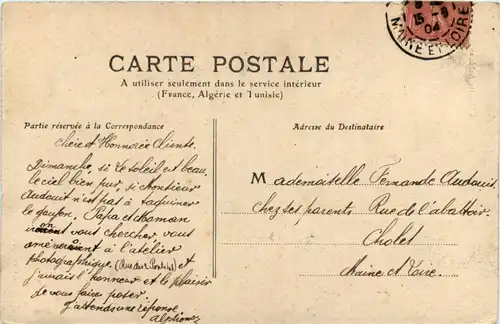 15 -9
04
MAINE ET LOIRE
CARTE POSTALE
A utiliser seulement dans le service intérieur
(France, Algérie et Tunisie)
Partie réservée à la Correspondance
Adresse du Destinataire
Chère et Honnorée Cliente.
Dimanche, si le soleil est beau,
le ciel bien pur, si monsieur
Audouit n'est pas à taquiner
le goujon, Papa et Maman
vont vous chercher vous
amèneront à l'atelier
photographique, (Rue des) et
j'aurais l'honneur et le plaisir
de vous faire poser.
J'attends une réponse.
Mademoiselle Fernande Audouit
chez ses parents Rue de l'abattoir.
Cholet
Maine et Loire.